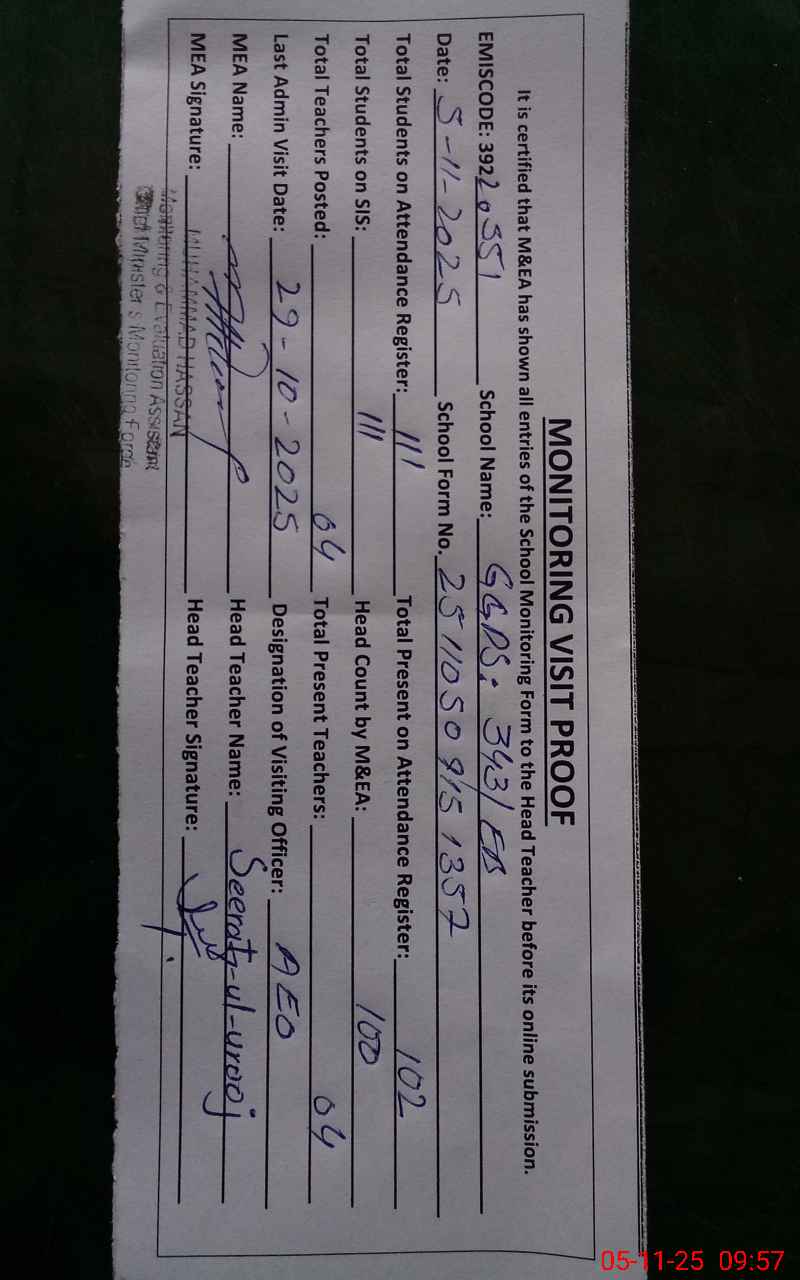 MONITORING VISIT PROOF
It is certified that M&EA has shown all entries of the School Monitoring Form to the Head Teacher before its online submission.
EMISCODE: 39220351 School Name: GGPS: 343/EB
Date: 5-11-2025 School Form No. 25110509151357
Total Students on Attendance Register: 111 Total Present on Attendance Register: 102
Total Students on SIS: 111 Head Count by M&EA: 100
Total Teachers Posted: 04 Total Present Teachers: 04
Last Admin Visit Date: 29-10-2025 Designation of Visiting Officer: AEO
MEA Name: Head Teacher Name: Seerat-ul-urooj
MEA Signature: Head Teacher Signature:
MUHAMMAD HASSAN
Monitoring & Evaluation Assistant
Chief Minister's Monitoring Force
05-11-25 09:57